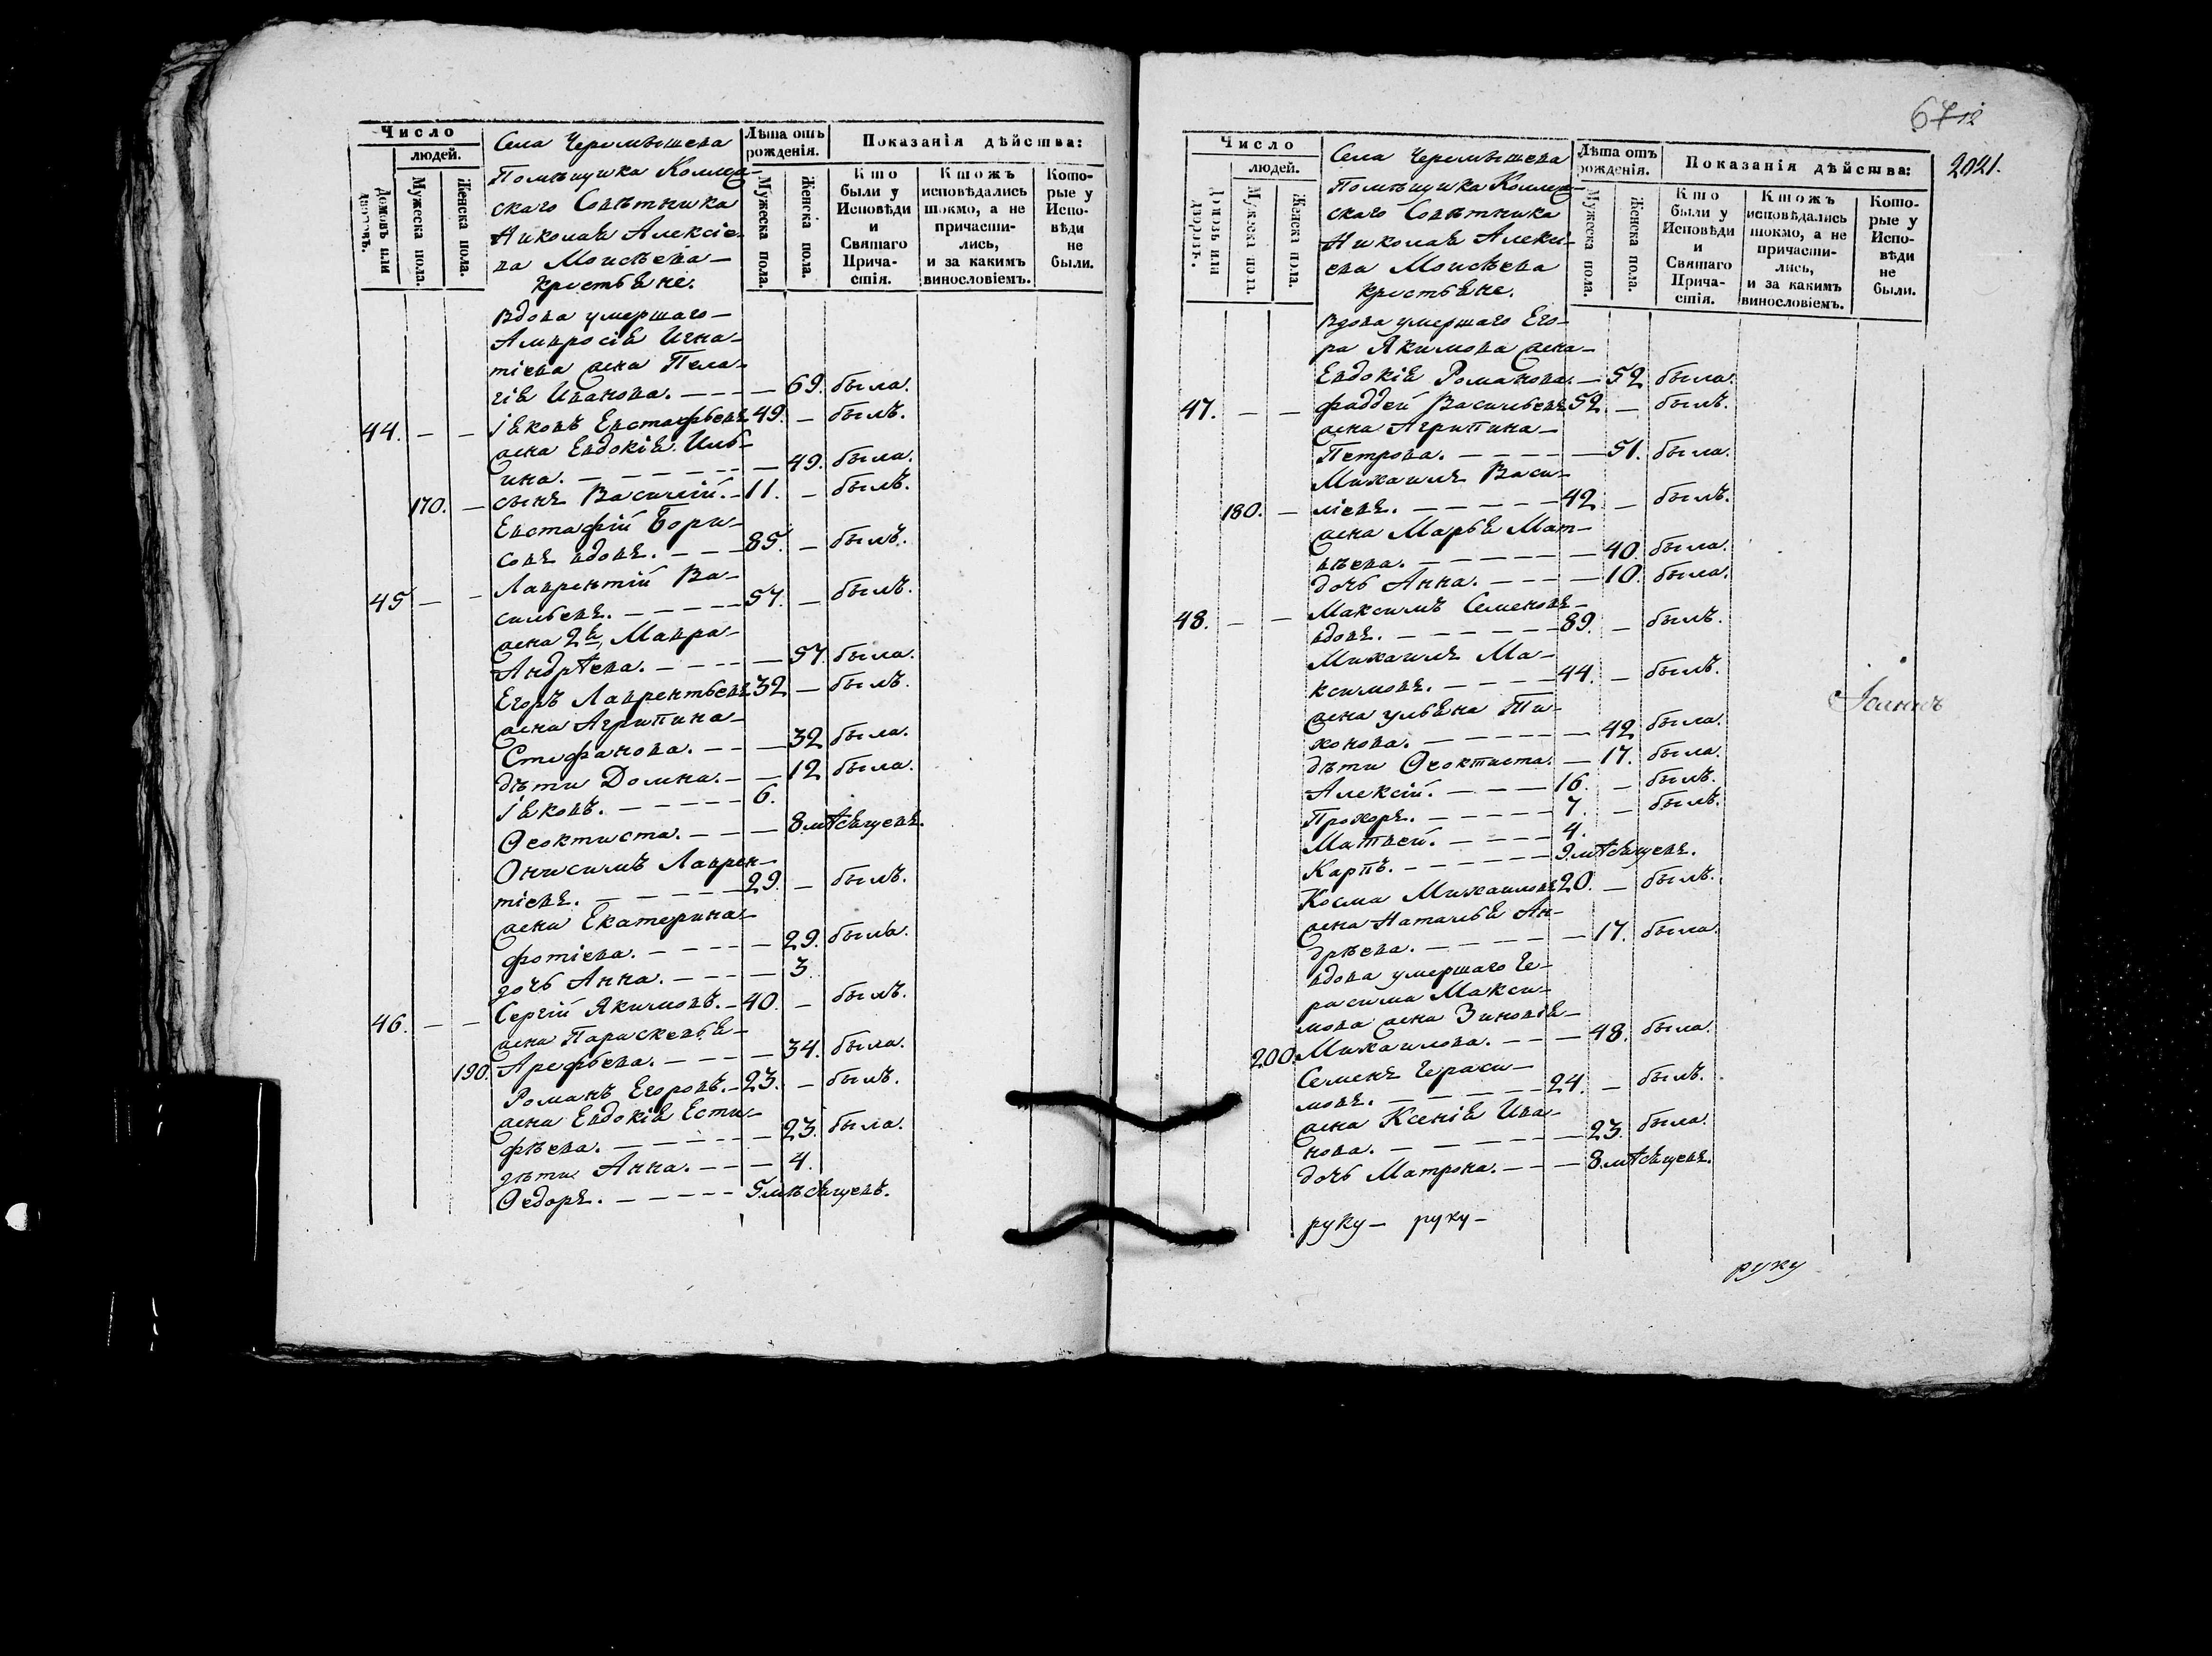 Число
людей.
Домовъ или дворовъ.
Мужеска пола.
Женска пола.
Села Черемышева
Помѣщика Коллеж-
скаго Совѣтника
Николая Алексіе-
ва Моисѣева
крестьяне.
Лѣта отъ рожденія.
Мужеска пола.
Женска пола.
Показанія дѣйства:
Кто были у Исповѣди и Святаго Прича-стія.
Ктожъ исповѣдались токмо, а не причасти-лись, и за какимъ винословіемъ.
Кото-рые у Испо-вѣди не были.
Вдова умершаго
Амвросія Игна-
тіева жена Пела-
гія Иванова. — 69. была.
44. — — Іяковъ Евстафьевъ 49. — былъ.
жена Евдокія Иль-
ина. — 49. была.
170. — сынъ Василій. 11. — былъ.
Евстафій Бори-
совъ вдовъ. 85. — былъ.
45 — — Лаврентій Ва-
сильевъ. 57. — былъ.
жена 2я Мавра
Андрѣева. — 57. была.
Егоръ Лаврентьевъ 32 — былъ.
жена Агрипина
Стефанова. — 32 была.
дѣти Домна. — 12 была.
Іяковъ. 6.
Ѳеоктиста. — 8 мѣсяцевъ.
Онисимъ Лаврен-
тіевъ. 29. — былъ.
жена Екатерина
Фотіева. — 29. была.
дочь Анна. — 3.
46. — — Сергій Якимовъ. 40. — былъ.
жена Параскевья
190. Арефьева. — 34. была.
Романъ Егоровъ. 23. — былъ.
жена Евдокія Ести-
фѣева. — 23. была.
дѣти Анна. — 4.
Ѳедоръ. 5 мѣсяцевъ.
2021.
Число
людей.
Домовъ или дворовъ.
Мужеска пола.
Женска пола.
Села Черемышева
Помѣщика Коллеж-
скаго Совѣтника
Николая Алексі-
ева Моисѣева
крестьяне.
Лѣта отъ рожденія.
Мужеска пола.
Женска пола.
Показанія дѣйства:
Кто были у Исповѣди и Святаго Прича-стія.
Ктожъ исповѣдались токмо, а не причасти-лись, и за какимъ винословіемъ.
Кото-рые у Испо-вѣди не были.
Вдова умершаго Его-
ра Якимова жена
Евдокія Романова. — 52 была.
47. — — Фаддей Васильевъ 52 — былъ.
жена Агрипина
Петрова. — 51. была.
Михаилъ Васи-
180. — ліевъ. 42 — былъ.
жена Марья Мат-
вѣева. — 40. была.
дочь Анна. — 10. была.
48. — — Максимъ Семеновъ
вдовъ. 89. — былъ.
Михаилъ Ма-
ксимовъ. 44. — былъ.
жена Ульяна Ти-
хонова. — 42 была.
дѣти Ѳеоктиста. — 17. была.
Алексій. 16. — былъ.
Прохоръ. 7. — былъ.
Матвей. 4.
Карпъ. 9 мѣсяцевъ.
Косма Михаиловъ 20. — былъ.
жена Наталья Ан-
дрѣева. — 17. была.
вдова умершаго Ге-
расима Макси-
мова жена Зиновія
200. Михаилова. — 48. была.
Семенъ Гераси-
мовъ. 24. — былъ.
жена Ксенія Ива-
нова. — 23. была.
дочь Матрона. — 8 мѣсяцевъ.
руку — руку —
руку